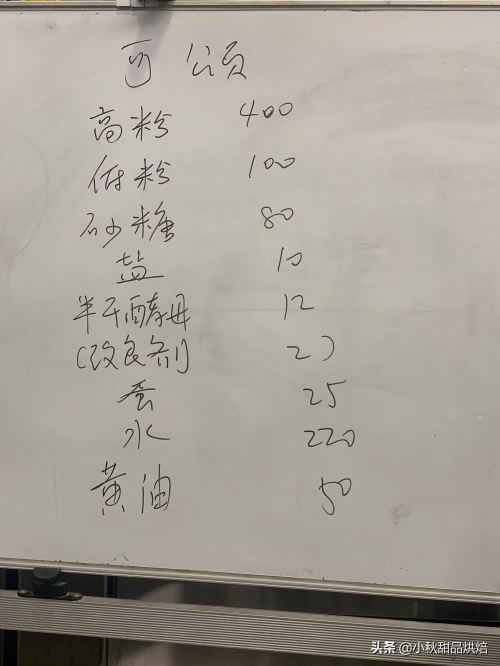 可公颂
高粉 400
低粉 100
砂糖 80
盐 10
半干酵母 12
(改良剂 2)
蛋 25
水 220
黄油 50
头条 @小秋甜品烘焙